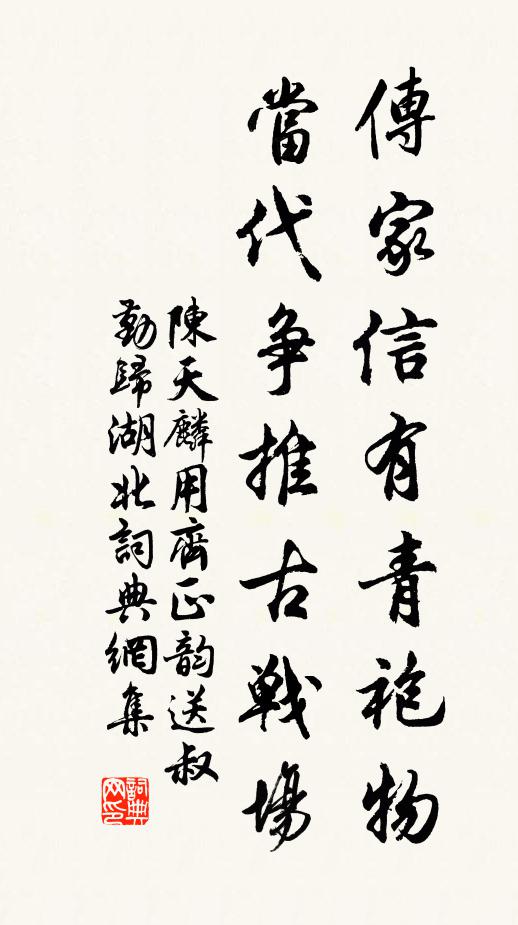 傳家信有青袍物
當代争推古戰場
陳天麟用齊正韵送叔
勤歸湖北詞典網集
詞典
网印